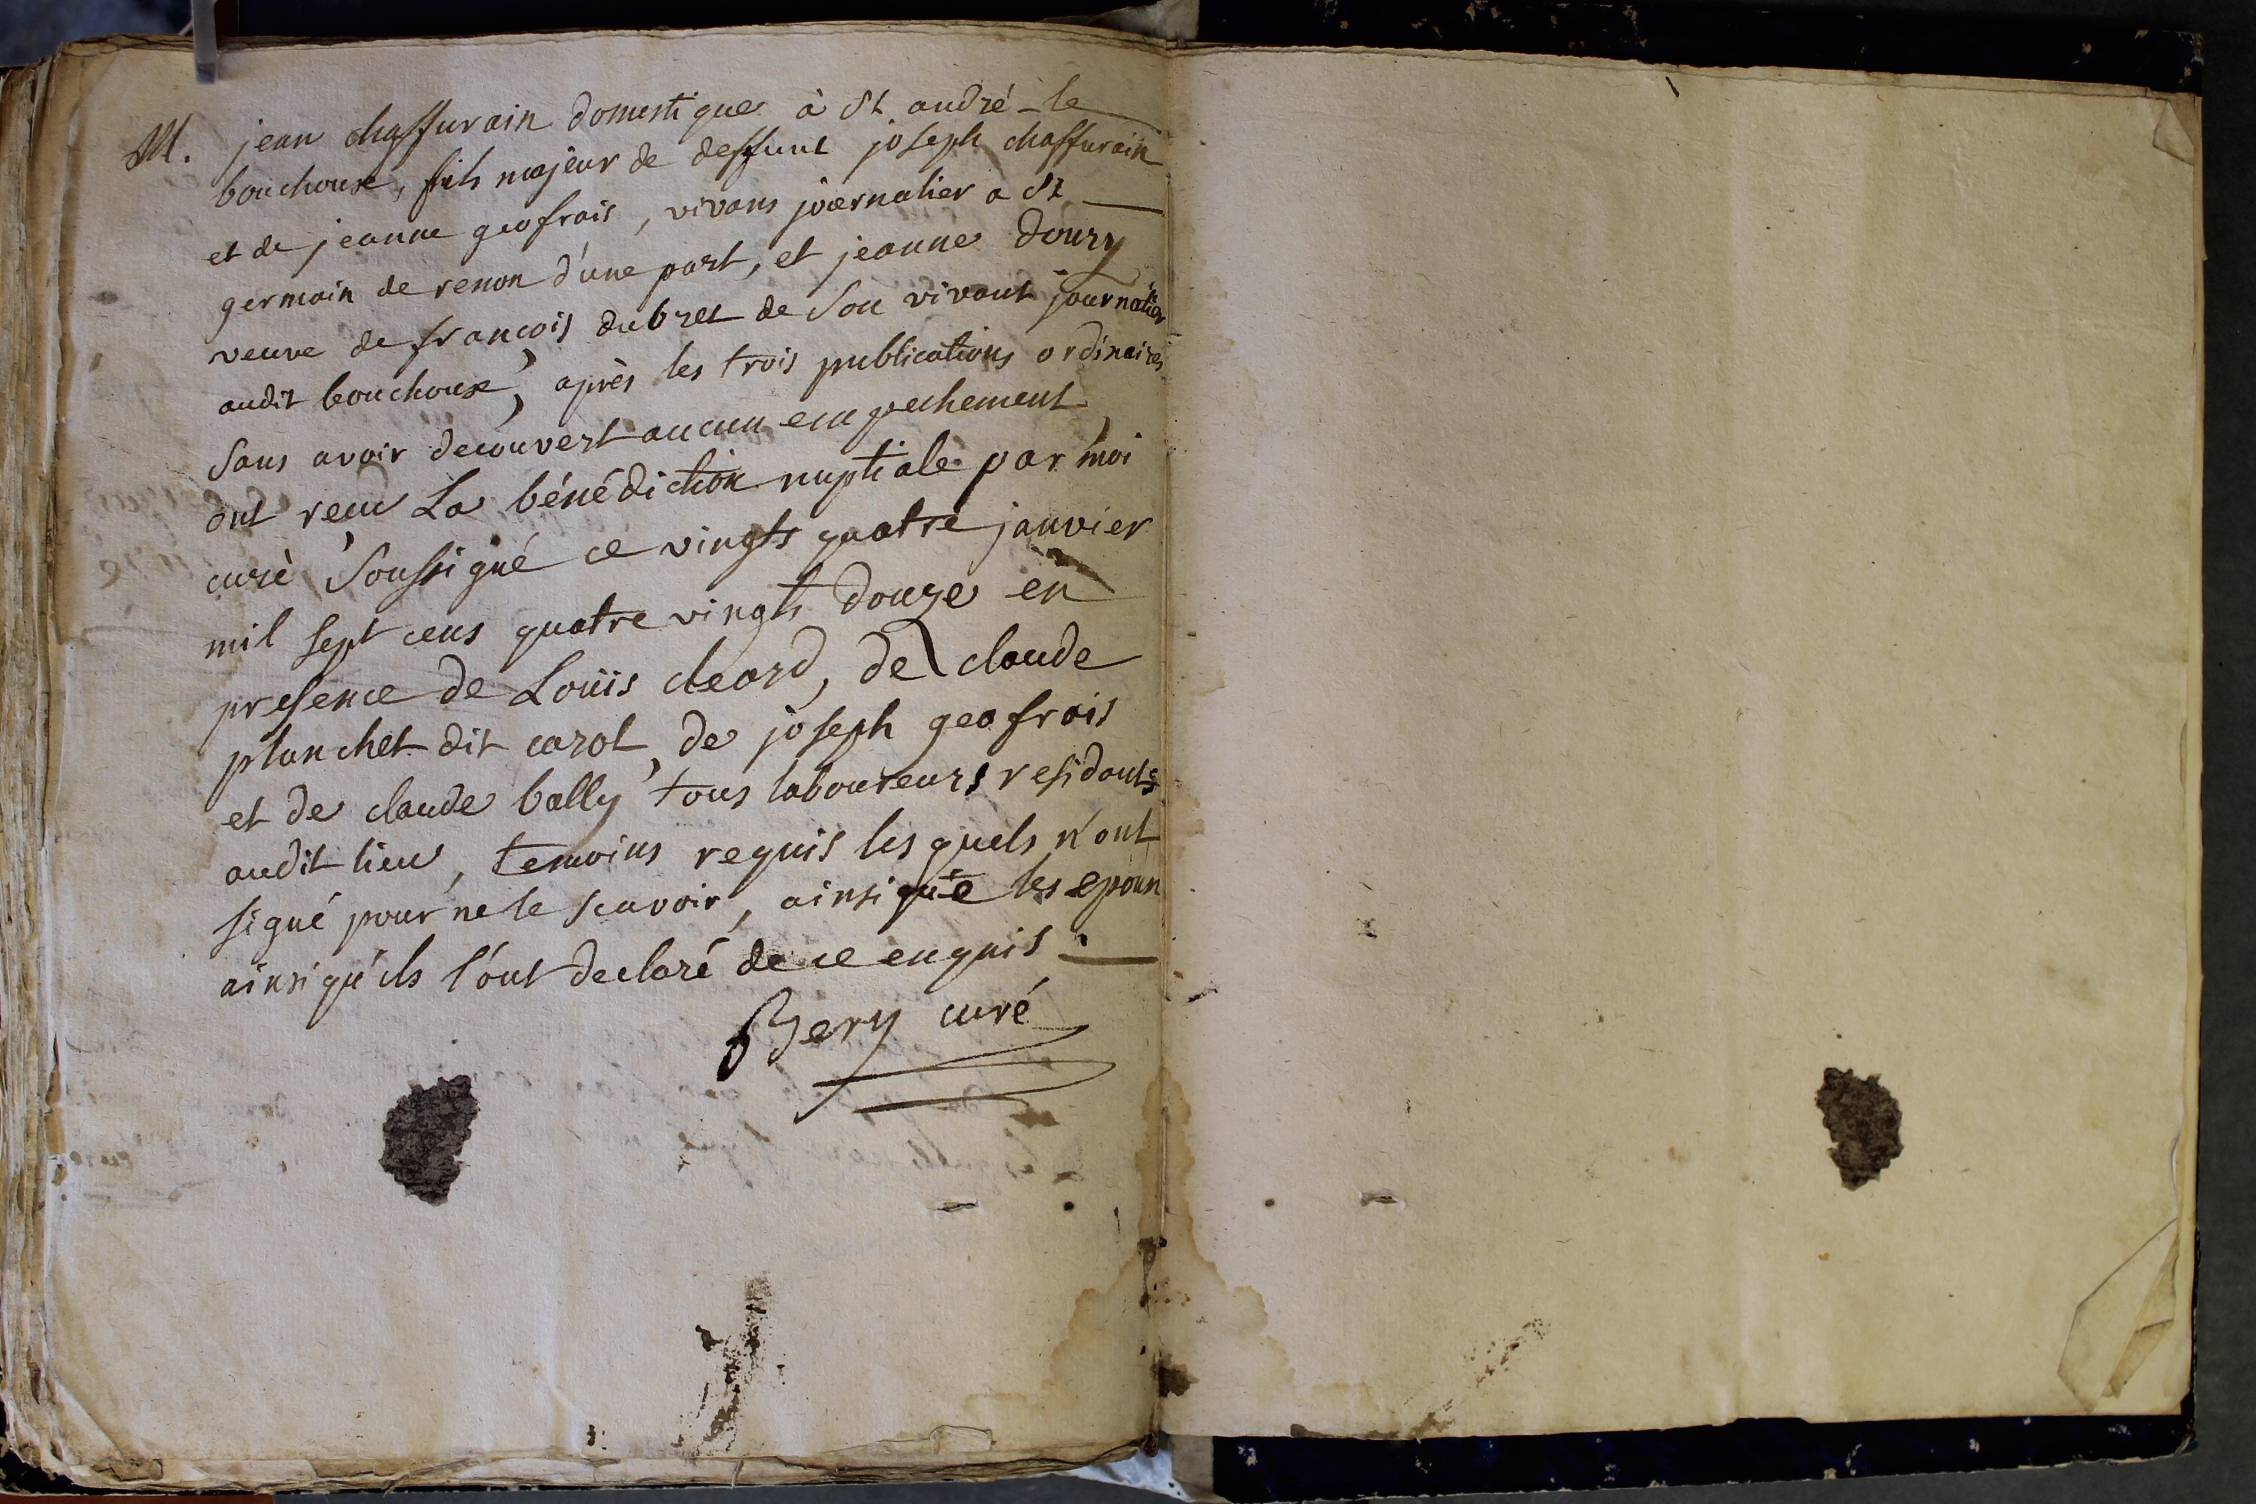 M. jean chaffurain domestique à St andré le
bouchoux, fils majeur de deffunt joseph chaffurain
et de jeanne geofrais, vivans journalier a St
germain de renon d'une part, et jeanne Doury
veuve de francois dubret de son vivant journalier
audit bouchoux, après les trois publications ordinaires
sans avoir decouvert aucun empechement
ont recu La bénédiction nuptiale par moi
curé soussigné ce vingts quatre janvier
mil sept cens quatre vingts douze en
presence de Louis cleard, de claude
planchet dit carol, de joseph geofrais
et de claude bally tous laboureurs residants
audit lieu, temoins requis lesquels n'ont
signé pour ne le scavoir, ainsi que les epoux
ainsi qu'ils l'ont declaré de ce enquis
Bery curé